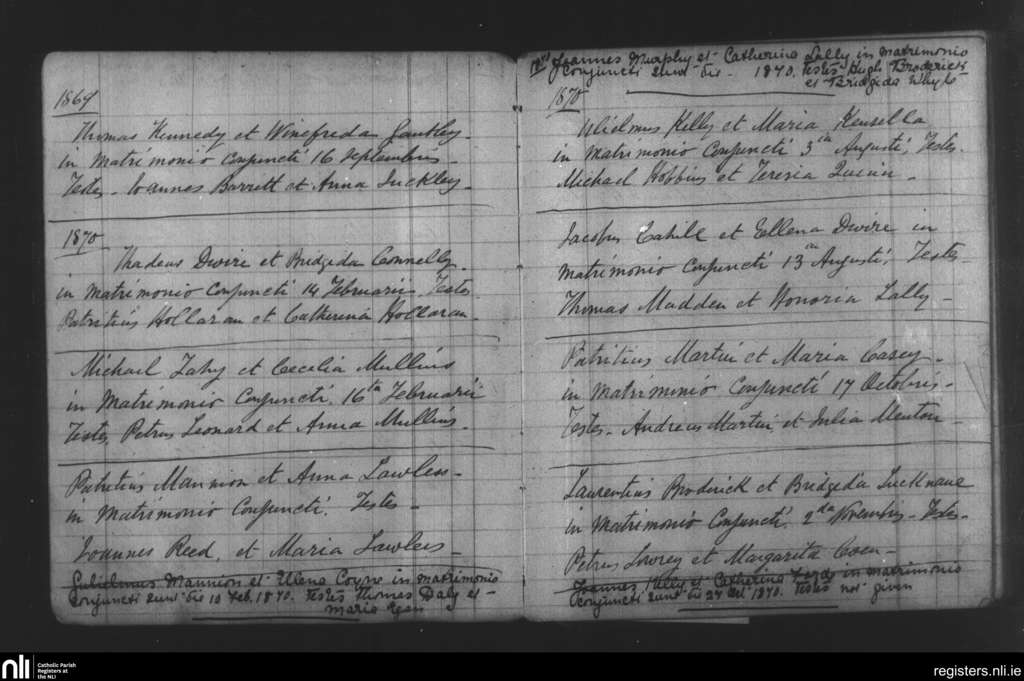 1869
Thomas Kennedy et Winefreda Gantley
in Matrimonio Conjuncti 16 Septembris
Testes - Joannes Barrett et Anna Tuckley
1870
Thadeas Dwire et Bridgida Connelly
in Matrimonio Conjuncti 14 Februarii Testes
Patritius Hollaran et Catherina Hollaran
Michael Fahy et Cecelia Mullins
in Matrimonio Conjuncti. 16ta Februarii
Testes Petrus Leonard et Anna Mullins
Patritius Mannion et Anna Lawless
in Matrimonio Conjuncti. Testes -
Joannes Reed, et Maria Lawless
Gulielmus Mannion et Ellena Coyne in matrimonio
conjuncti sunt die 10 Feb. 1870. Testes Thomas Daly et
Maria Egan
Joannes Murphy et Catherina Lally in matrimonio
conjuncti sunt die - 1870. Testes Hugh Broderick
et Bridgida Whyte
1870
Gulielmus Kelly et Maria Kensella
in Matrimonio Conjuncti 3ia Augusti, Testes.
Michael Hobbins et Teresia Quinn -
Jacobus Cahill et Ellena Dwire in
Matrimonio Conjuncti 13 Augusti, Testes
Thomas Madden et Honoria Lally -
Patritius Martin et Maria Casey -
in Matrimonio Conjuncti 17 Octobris -
Testes - Andreas Martin, et Julia Menton
Laurentius Broderick et Bridgida Lucknane
in Matrimonio Conjuncti. 2da Novembris - Testes -
Petrus Lowrey et Margarita Coen -
Joannes Kelly et Catherina in matrimonio
conjuncti sunt die 27 1870. Testes not given
nli
Catholic Parish
Registers at
the NLI
registers.nli.ie